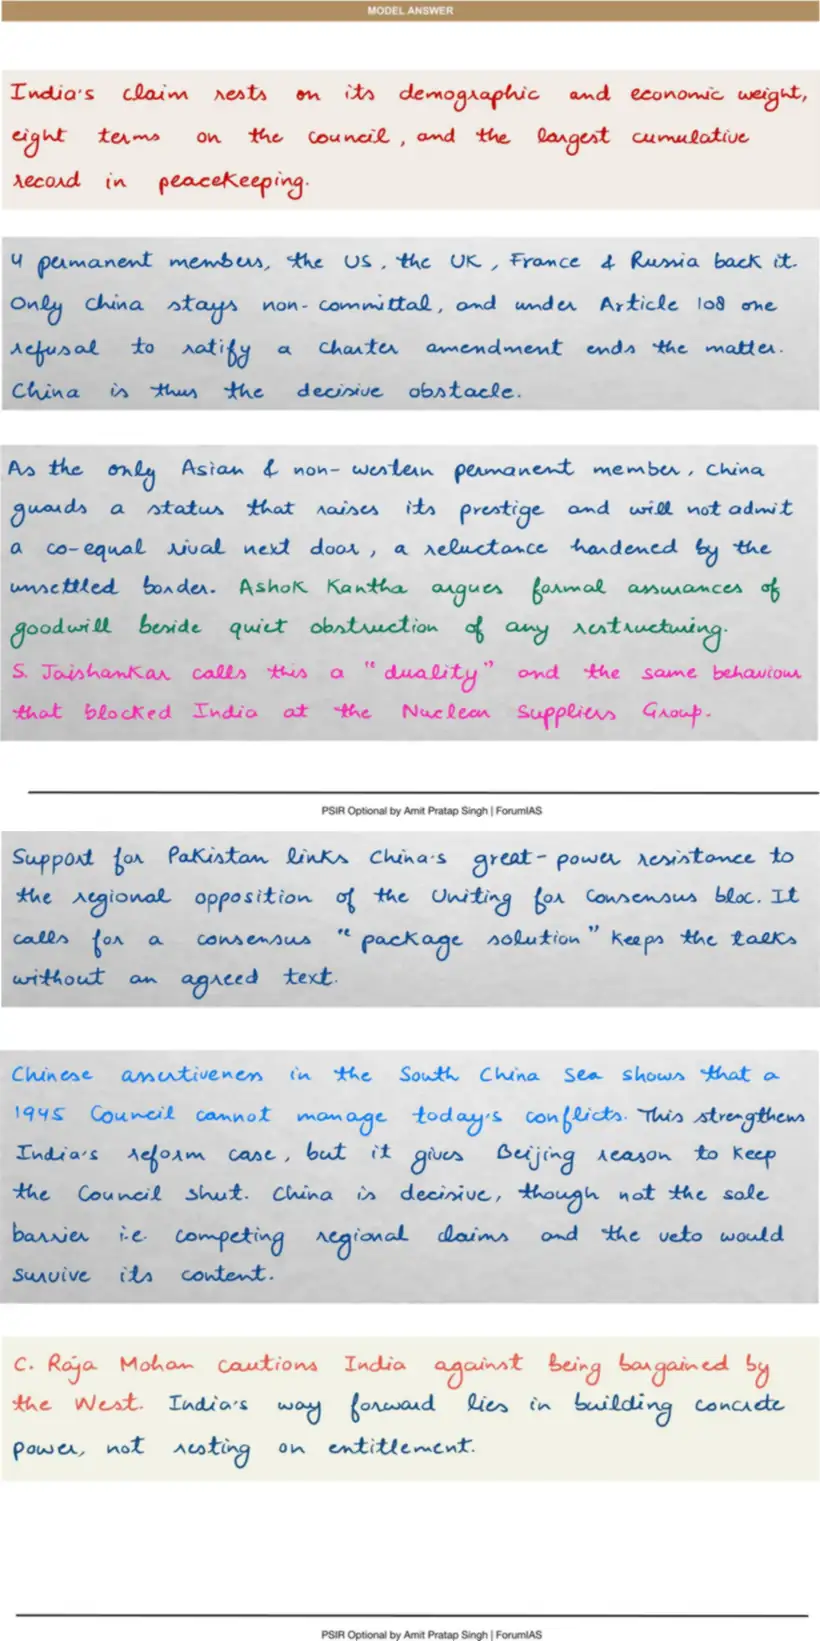 MODEL ANSWER
India's claim rests on its demographic and economic weight,
eight terms on the council, and the largest cumulative
record in peacekeeping.
4 permanent members, the US, the UK, France & Russia back it.
Only China stays non-committal, and under Article 108 one
refusal to ratify a charter amendment ends the matter.
China is thus the decisive obstacle.
As the only Asian & non-western permanent member, China
guards a status that raises its prestige and will not admit
a co-equal rival next door, a reluctance hardened by the
unsettled border. Ashok Kantha argues formal assurances of
goodwill beside quiet obstruction of any restructuring.
S. Jaishankar calls this a "duality" and the same behaviour
that blocked India at the Nuclear Suppliers Group.
PSIR Optional by Amit Pratap Singh | ForumIAS
Support for Pakistan links China's great-power resistance to
the regional opposition of the Uniting for Consensus bloc. It
calls for a consensus "package solution" keeps the talks
without an agreed text.
Chinese assertiveness in the South China Sea shows that a
1945 Council cannot manage today's conflicts. This strengthens
India's reform case, but it gives Beijing reason to keep
the Council shut. China is decisive, though not the sole
barrier i.e. competing regional claims and the veto would
survive its content.
C. Raja Mohan cautions India against being bargained by
the West. India's way forward lies in building concrete
power, not resting on entitlement.
PSIR Optional by Amit Pratap Singh | ForumIAS